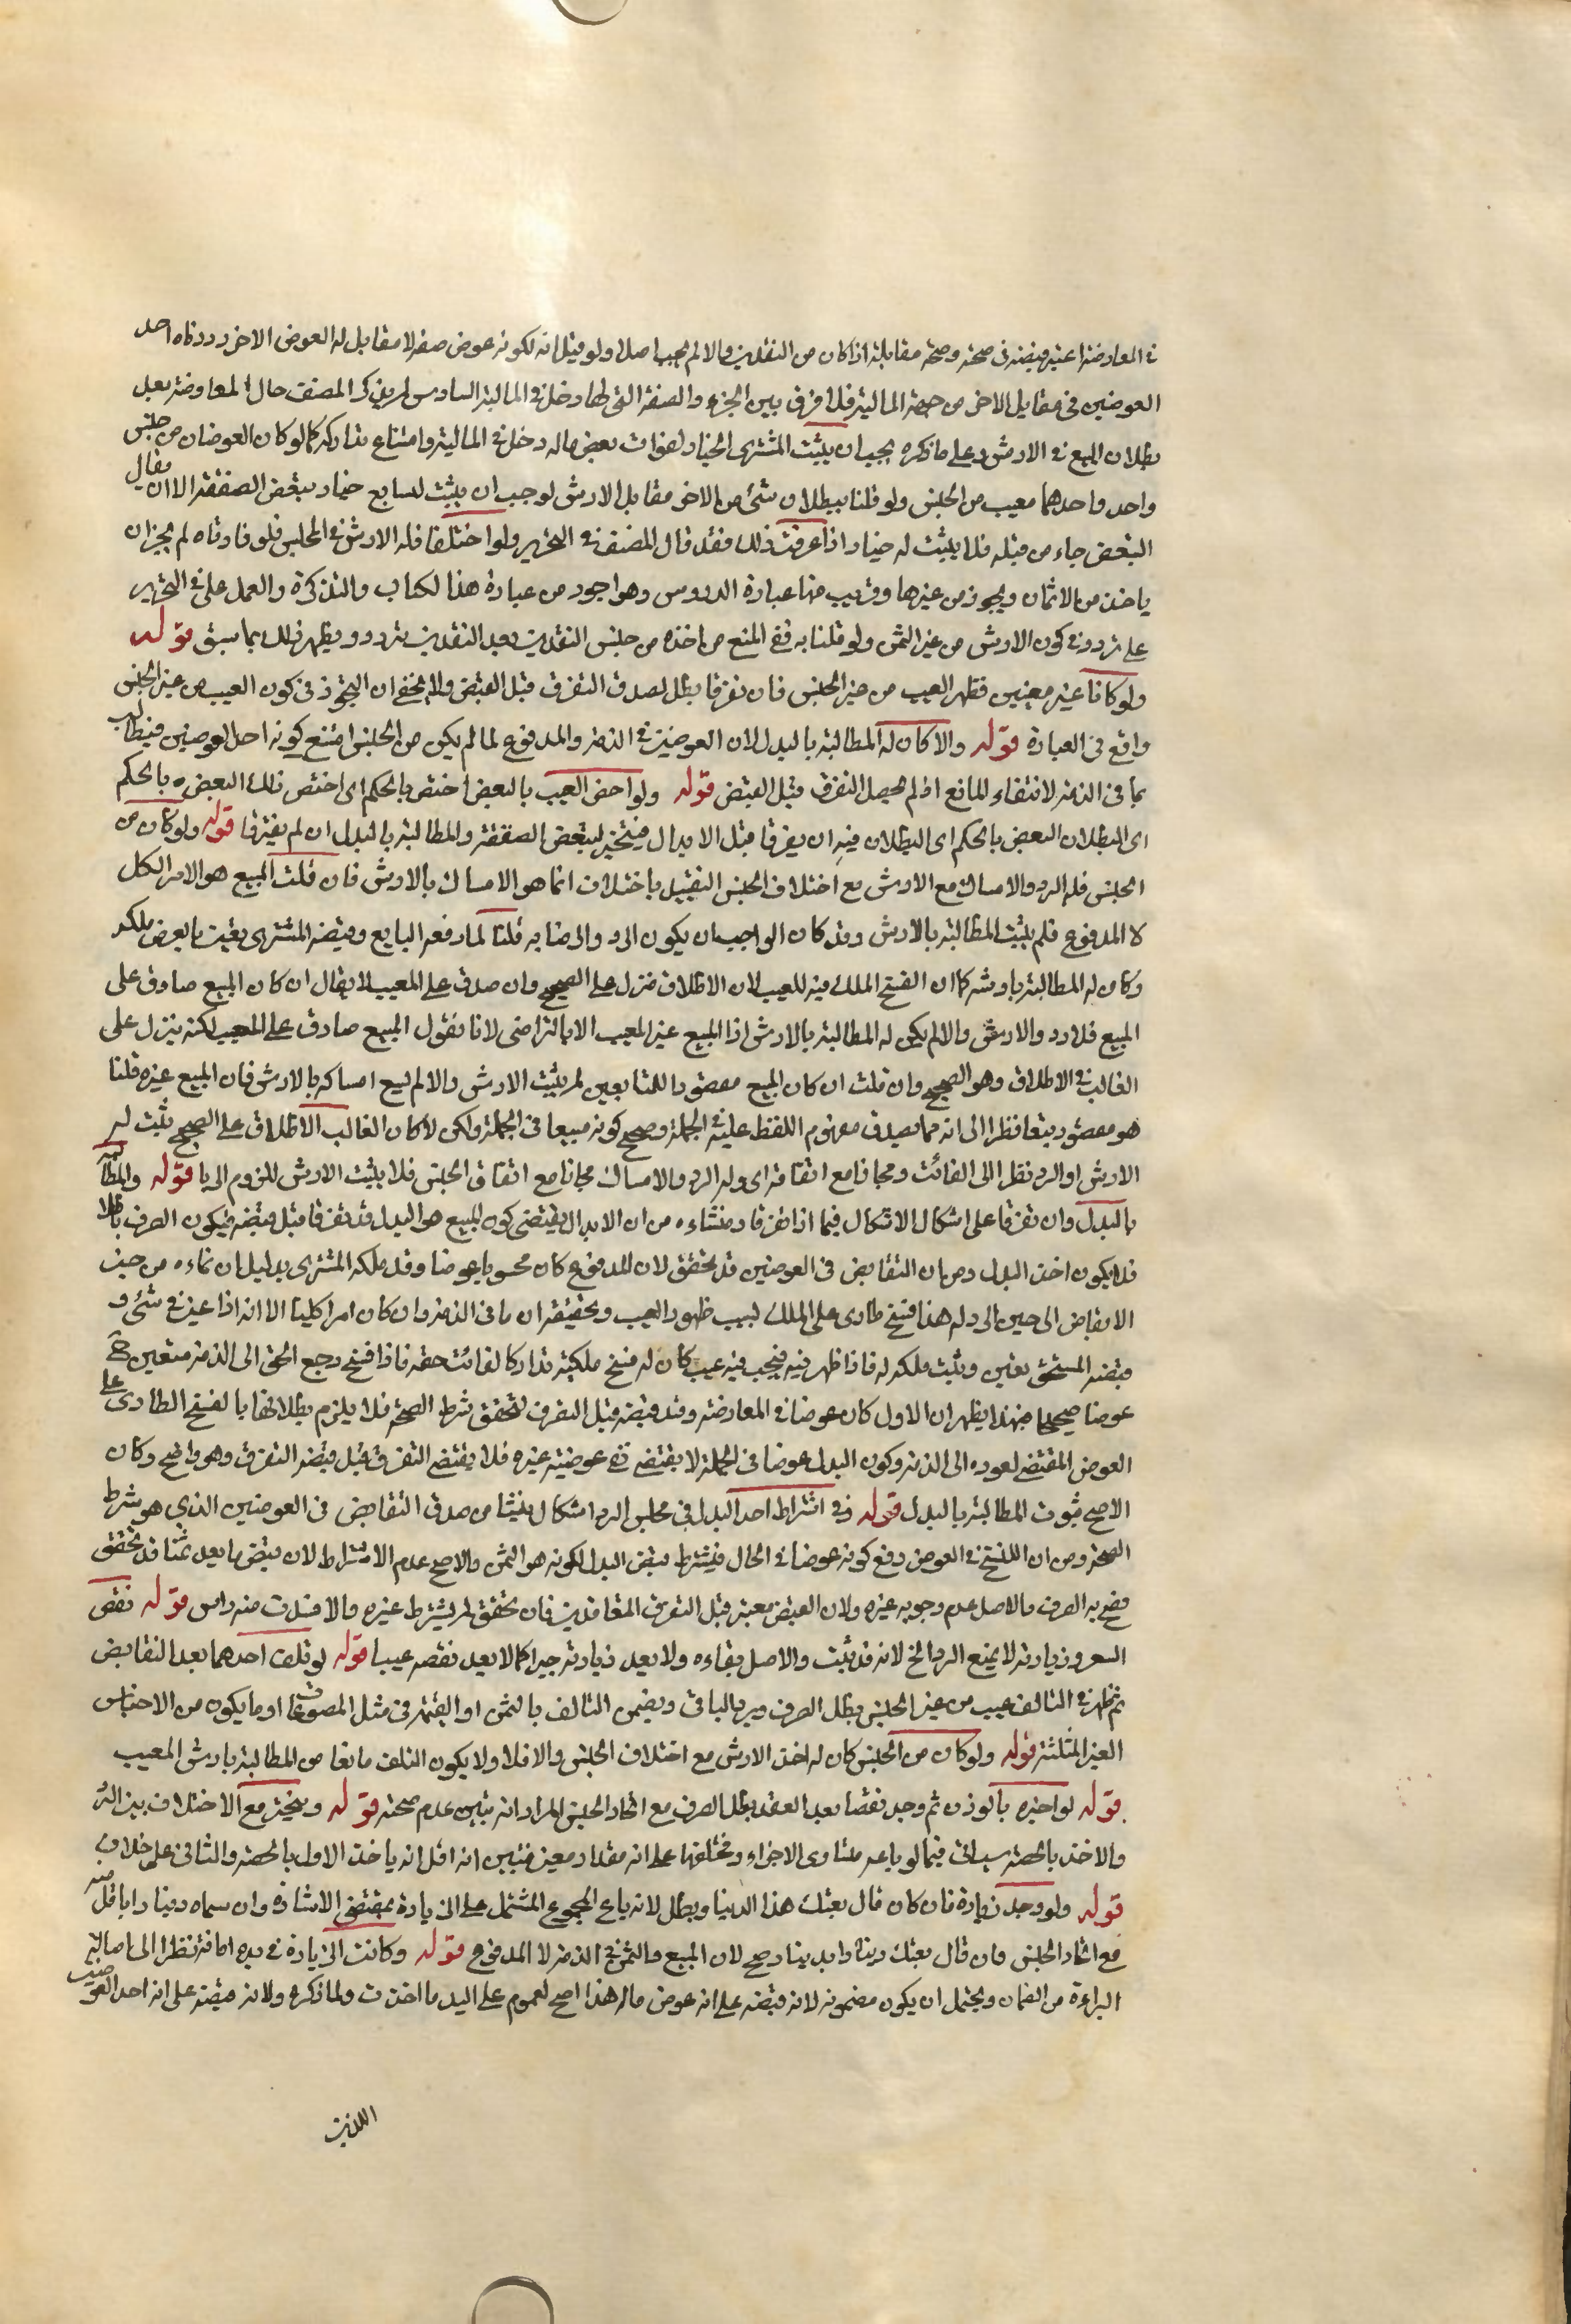 في المعاوضة اعتبر قبضه في صحته وصحة مقابله اذا كان من النقدين والا لم يجب اصلا ولو قيل انه لكونه عوض صفة لا مقابل له العوض الاخر رددناه احد
العوضين في مقابل الاخر من جهة المالية فلا فرق بين الجزء والصفة التي لها دخل في المالية السادس لم يذكر المصنف حال المعاوضة بعد
بطلان البيع في الارش وعلى ما ذكره يجب ان يثبت للمشترى الخيار لفوات بعض ماله دخل في المالية وامتناع تداركه كما لو كان العوضان من جنس
واحد واحدهما معيب من الجنس ولو قلنا ببطلان شئ من الاخر مقابل الارش لوجب ان يثبت للبايع خيار تبعض الصفقة الا ان يقال
التبعض جاء من قبله فلا يثبت له خيار اذا عرفت ذلك فقد قال المصنف في التحرير ولو اختلفا فله الارش في المجلس فلو فارقاه لم يجز ان
ياخذ من الاثمان ويجوز من غيرها وقريب منها عبارة الدروس وهو اجود من عبارة هذا الكتاب والتذكرة والعمل على ما في التحرير
على تردد في كون الارش من غير الثمن ولو قلنا به ففي المنع من اخذه من جنس النقدين بعد النقدين تردد ويظهر ذلك بما سبق قوله
ولو كانا غير معينين فظهر العيب من غير الجنس فان تفرقا بطل لصدق التفرق قبل القبض ولا يخفى ان التجوز في كون العيب من غير الجنس
واقع في العبارة قوله والا كان له المطالبة بالبدل لان العوضين في الذمة والمدفوع لما لم يكن من الجنس امتنع كونه احد العوضين فيطالب
بما في الذمة لانتفاء المانع اذ لم يحصل التفرق قبل القبض قوله ولو اختص العيب بالبعض اختص بالحكم اى اختص ذلك البعض بالحكم
اى البطلان البعض بالحكم اى البطلان فيه ان يفرقا قبل الابدال فيتخير لتبعض الصفقة والمطالبة بالبدل ان لم يفترقا قوله ولو كان من
الجنس فله الرد والامساك مع الارش مع اختلاف الجنس التقييد باختلاف انما هو الامساك بالارش فان قلت المبيع هو الامر الكل
لا المدفوع فلم يثبت المطالبة بالارش وقد كان الواجب ان يكون الرد والرضا به قلنا لما دفعه البايع وقبضه المشترى بقيت ما يعرض ملكه
وكان له المطالبة بارشه كما ان الفسخ الملك فيه للعيب لان الاطلاق منزل على الصحيح وان صدق على المعيب لا يقال ان كان المبيع صادق على
المبيع فلا رد والارش والا لم يكن له المطالبة بالارش اذا المبيع غير المعيب الا بالتراضى لانا نقول المبيع صادق على المعيب لكنه ينزل على
الغالب في الاطلاق وهو الصحيح وان قلت ان كان المبيع مقصودا للمتابعين لم يثبت الارش والا لم يسع امساكه بالارش فان المبيع غيره قلنا
هو مقصود بتعا نظرا الى انه مما يصدق مفهوم اللفظ عليه في الجملة وصح كونه مبيعا في الجملة ولكن لا كان الغالب الاطلاق على الصحيح يثبت له
الارش او الرد نظرا الى الفائت ومجانا مع اتفاقه اى وله الرد والامساك مجانا مع اتفاق الجنس فلا يثبت الارش للزوم الربا قوله والمطالبة
بالبدل وان تفرقا على اشكال الاشكال فيما اذا تفرقا ومنشاءه من ان الابدال يقتضى كون المبيع هو البدل فقد تفرقا قبل قبضه فيكون الصرف باطلا
فلا يكون اخذ البدل ومن ان التقابض في العوضين قد تحقق لان المدفوع كان محسوبا عوضا وقد ملكه المشترى بدليل ان نماءه من حين
الاقباض الى حين الرد له هذا فسخ طارى على الملك لسبب ظهور العيب وتحقيقه ان ما في الذمة وان كان امرا كليا الا انه اذا عين في شئ و
قبضه المستحق تعين وثبت ملكه له فاذا ظهر فيه عيب كان له فسخ ملكيته تداركا لفائت حقه فاذا فسخ رجع الحق الى الذمة متعين
عوضا صحيحا فبهذا يظهر ان الاول كان عوضا في المعاوضة وقد قبضه قبل التفرق لتحقق شرط الصحة فلا يلزم بطلانها بالفسخ الطارى على
العوض المقتضى لعوده الى الذمة وكون البدل عوضا في الجملة لا يقتضى نفى عوضية غيره فلا يقتضى التفرق قبل قبضه التفرق وهو واضح وكان
الاصح ثبوت المطالبة بالبدل قوله وفى اشتراط احد البدل في مجلس الرد اشكال ينشا من صدق التقابض في العوضين الذي هو شرط
الصحة ومن ان الفسخ في العوض رفع كونه عوضا في الحال فيشترط قبض البدل لكونه هو الثمن والاصح عدم الاشتراط لان قبض ما يعد ثمنا قد تحقق
فصح به الصرف والاصل عدم وجوبه غيره ولان القبض معتبر قبل التفرق المتعاقدين فان تحقق لم يشترط غيره والا فسدت منه راس قوله نقص
السعر وزيادته لا يمنع الرد الخ لانه قد ثبت والاصل بقاءه ولا يعد زيادته جبرا كما لا يعد نقصه عيبا قوله لو تلف احدهما بعد التقابض
ثم ظهر في التالف عيب من غير الجنس بطل الصرف ويرد الباقى ويضمن التالف بالثمن او القيمة في مثل المصوغات او ما يكون من الاجناس
الغير المثلثة قوله ولو كان من الجنس كان له اخذ الارش مع اختلاف الجنس والا فلا ولا يكون التلف مانعا من المطالبة بارش المعيب
قوله لو اخبره بالوزن ثم وجد نقصا بعد العقد بطل الصرف مع اتحاد الجنس المراد انه تبين عدم صحته قوله ويتخير مع الاختلاف بين الرد
والاخذ بالحصة سياتى فيما لو باعه متساوى الاجزاء ومختلفها على انه مقدار معين فتبين انه اقل انه ياخذ الاول بالحصة والثانى على خلاف
قوله ولو وجد زيادة فان كان قال بعتك هذا الدينار بطل لانه باع المجموع المشتمل على الزيادة بمقتضى الاشارة وان سماه دينارا باقل منه
مع اتحاد الجنس وان قال بعتك دينارا بدينار صح لان المبيع والثمن في الذمة لا المدفوع قوله وكانت الزيادة في يده امانة نظرا الى اصالة
البراءة من الضمان ويحتمل ان يكون مضمونه لانه قبضه على انه عوض ماله هذا اصح لعموم على اليد ما اخذت ولما ذكره ولانه قبضه على انه احد العوضين
اللذين